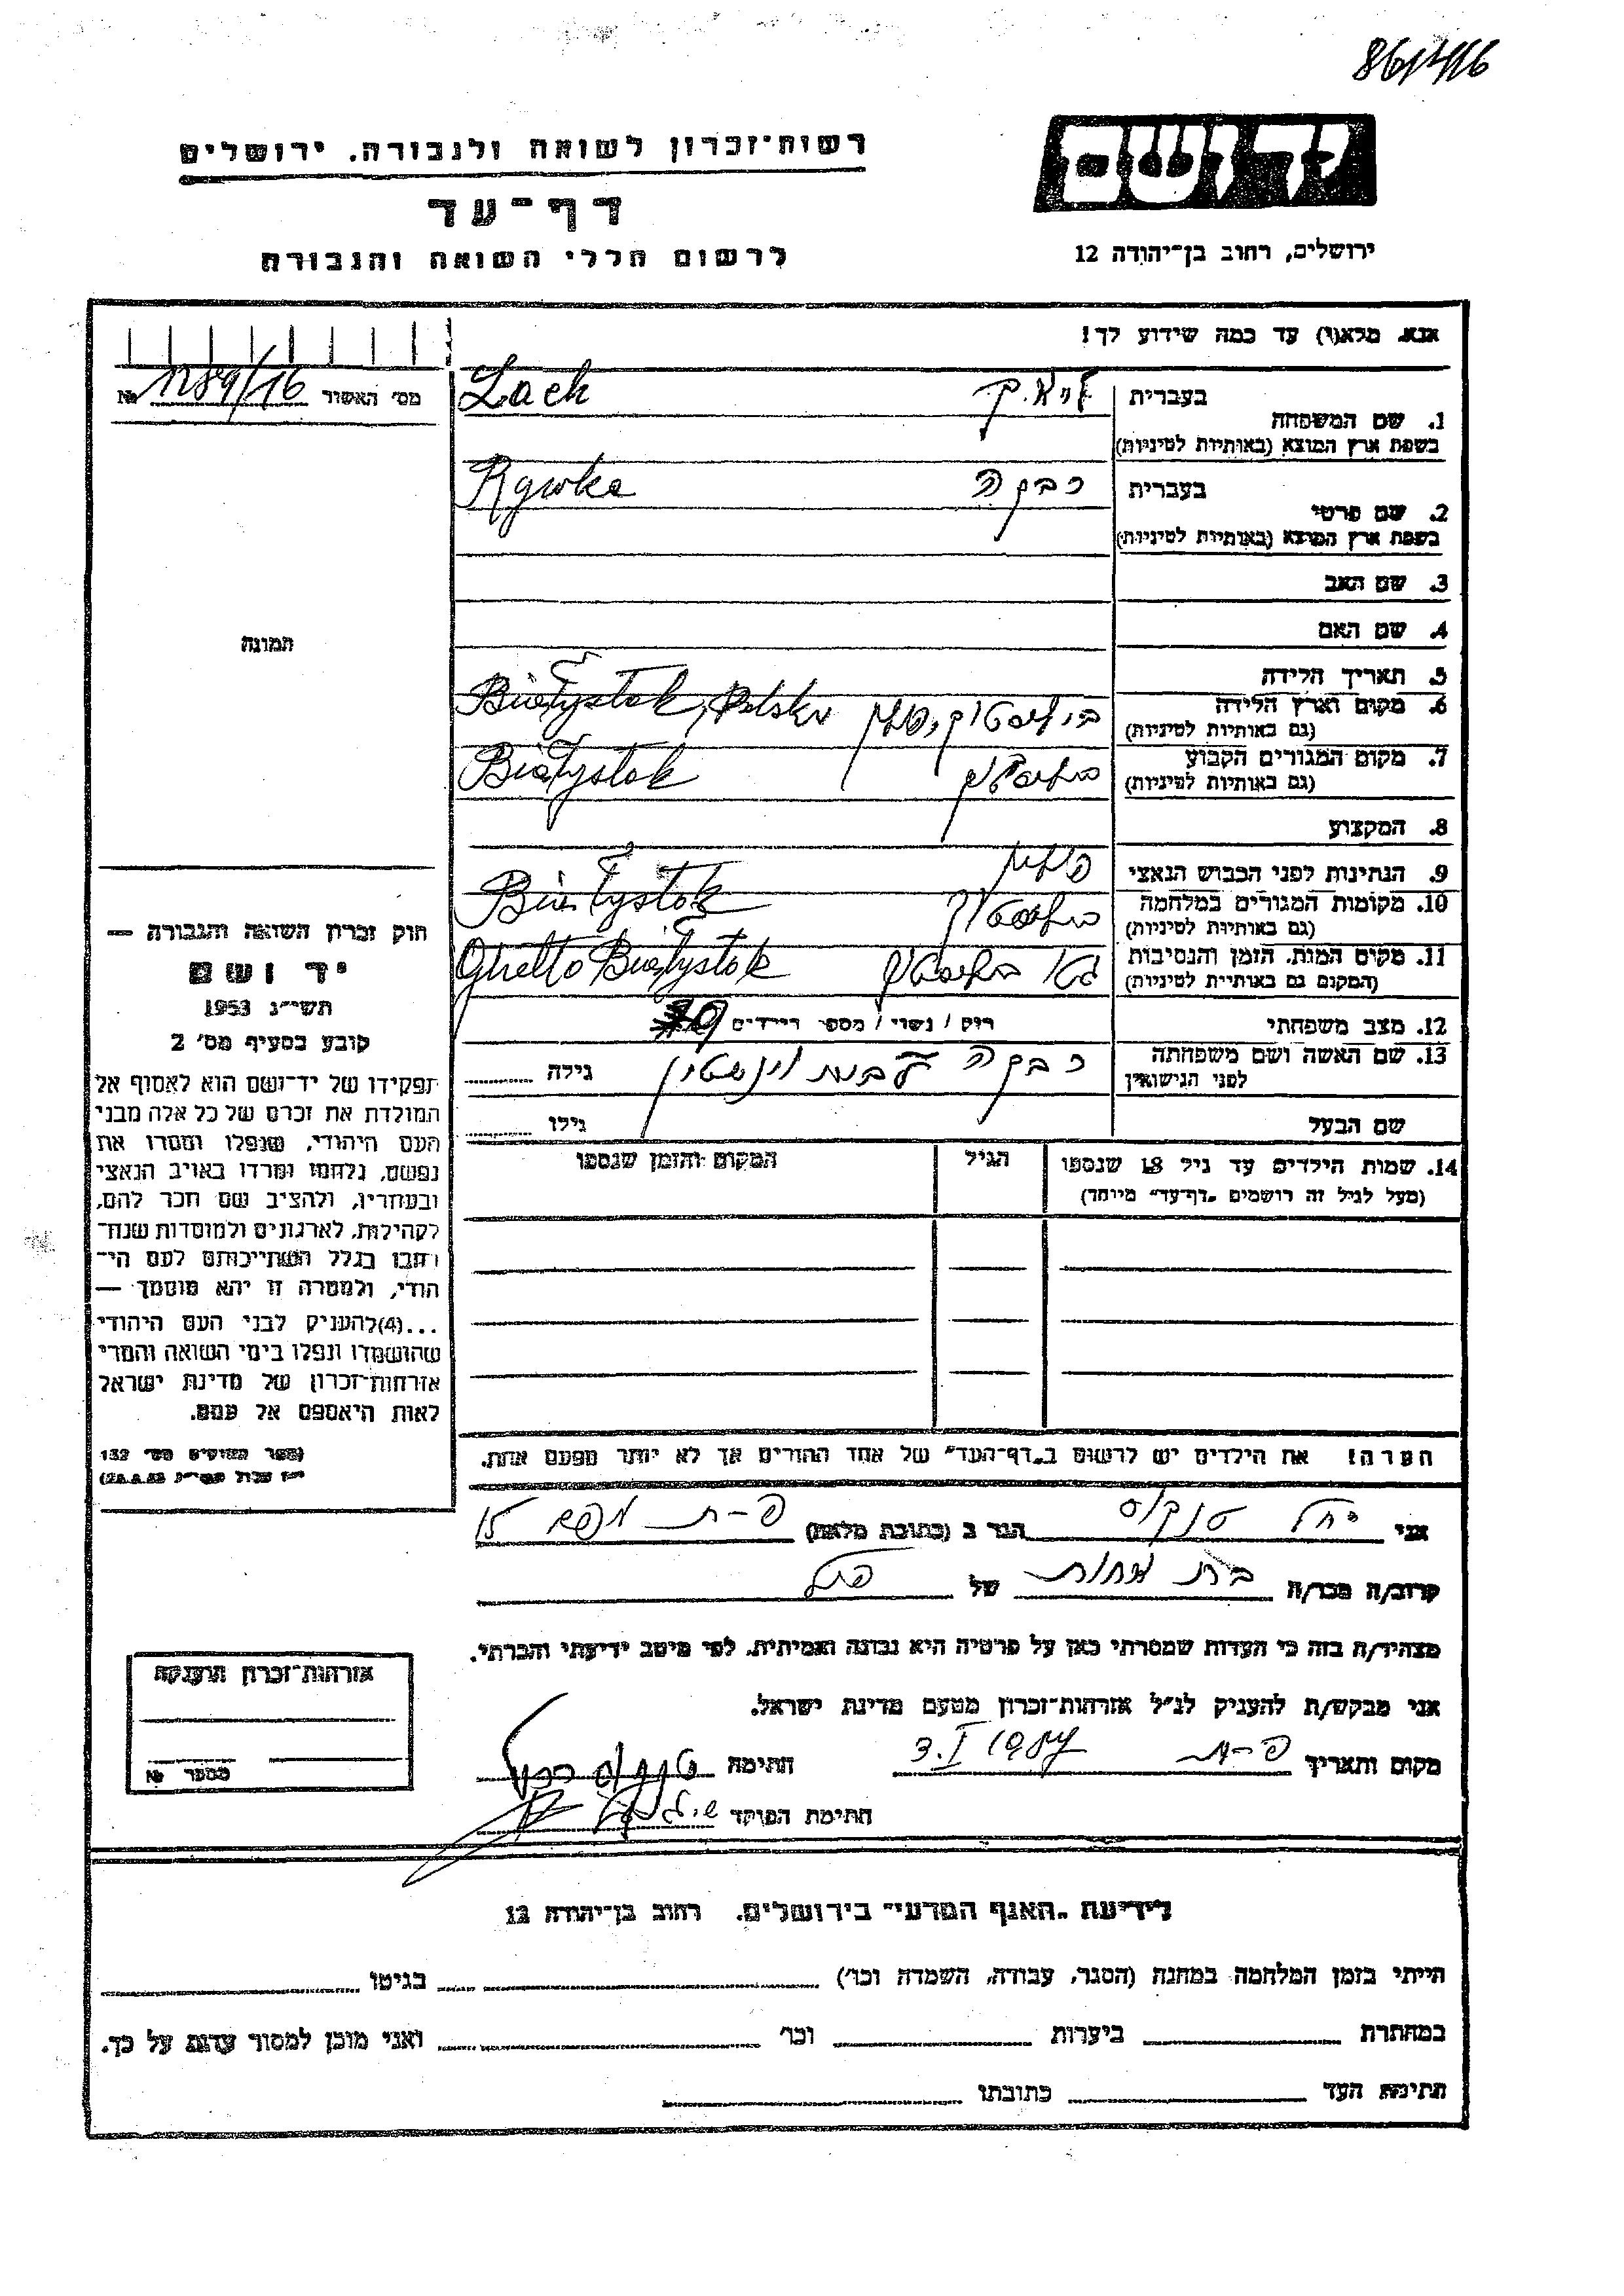 86/1416
רשות־זכרון לשואה ולגבורה, ירושלים
יד ושם
דף־עד
לרשום חללי השואה והגבורה
ירושלים, רחוב בן־יהודה 12
אנא, מלא(י) עד כמה שידוע לך!
מס' האשור № 1289/16
1. שם המשפחה
בעברית
Zach
בשפת ארץ המוצא (באותיות לטיניות)
2. שם פרטי
בעברית רבקה
Rywka
בשפת ארץ המוצא (באותיות לטיניות)
3. שם האב
4. שם האם
תמונה
5. תאריך הלידה
6. מקום וארץ הלידה ביאליסטוק, פולין Białystok, Polska
(גם באותיות לטיניות)
7. מקום המגורים הקבוע ביאליסטוק Białystok
(גם באותיות לטיניות)
8. המקצוע
9. הנתינות לפני הכבוש הנאצי פולנית
10. מקומות המגורים במלחמה ביאליסטוק Białystok
(גם באותיות לטיניות)
11. מקום המות, הזמן והנסיבות גטו ביאליסטוק Ghetto Białystok
(המקום גם באותיות לטיניות)
12. מצב משפחתי רווק / נשוי / מספר הילדים
13. שם האשה ושם משפחתה רבקה לבית וינשטין גילה
לפני הנישואין
שם הבעל גילו
14. שמות הילדים עד גיל 18 שנספו הגיל המקום והזמן שנספו
(מעל לגיל זה רושמים „דף־עד" מיוחד)
חוק זכרון השואה והגבורה —
יד ושם
תשי"ג 1953
קובע בסעיף מס' 2
תפקידו של יד־ושם הוא לאסוף אל
המולדת את זכרם של כל אלה מבני
העם היהודי, שנפלו ומסרו את
נפשם, נלחמו ומרדו באויב הנאצי
ובעוזריו, ולהציב שם וזכר להם,
לקהילות, לארגונים ולמוסדות שנח־
רבו בגלל השתייכותם לעם הי־
הודי, ולמטרה זו יהא מוסמך —
...(4) להעניק לבני העם היהודי
שהושמדו ונפלו בימי השואה והמרי
אזרחות־זכרון של מדינת ישראל
לאות היאספם אל עמם.
(ספר החוקים מס' 132
י"ז אלול תשי"ג 28.8.53)
הערה! את הילדים יש לרשום ב„דף־העד" של אחד ההורים אך לא יותר מפעם אחת.
אני רחל הגר ב (כתובת מלאה) פ־ת 15
קרוב/ה מכר/ה בת אחות של
מצהיר/ה בזה כי העדות שמסרתי כאן על פרטיה היא נכונה ואמיתית, לפי מיטב ידיעתי והכרתי.
אני מבקש/ת להעניק לנ"ל אזרחות־זכרון מטעם מדינת ישראל.
מקום ותאריך פ־ת 3.I 1957 חתימה
חתימת הפוקד
אזרחות־זכרון הוענקה
מספר №
לידיעת „האגף המדעי" בירושלים, רחוב בן־יהודה 12
הייתי בזמן המלחמה במחנה (הסגר, עבודה, השמדה וכו') בגיטו
במחתרת ביערות וכו' ואני מוכן למסור עדות על כך.
חתימת העד כתובתו